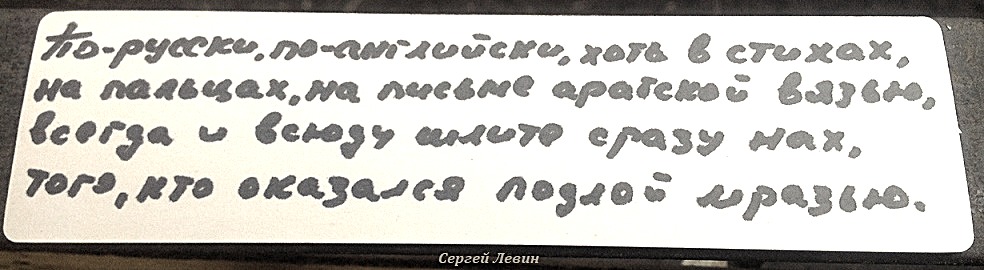 По-русски, по-английски, хоть в стихах,
на пальцах, на письме арабской вязью,
всегда и всюду шлите сразу нах,
того, кто оказался подлой мразью.
Сергей Левин